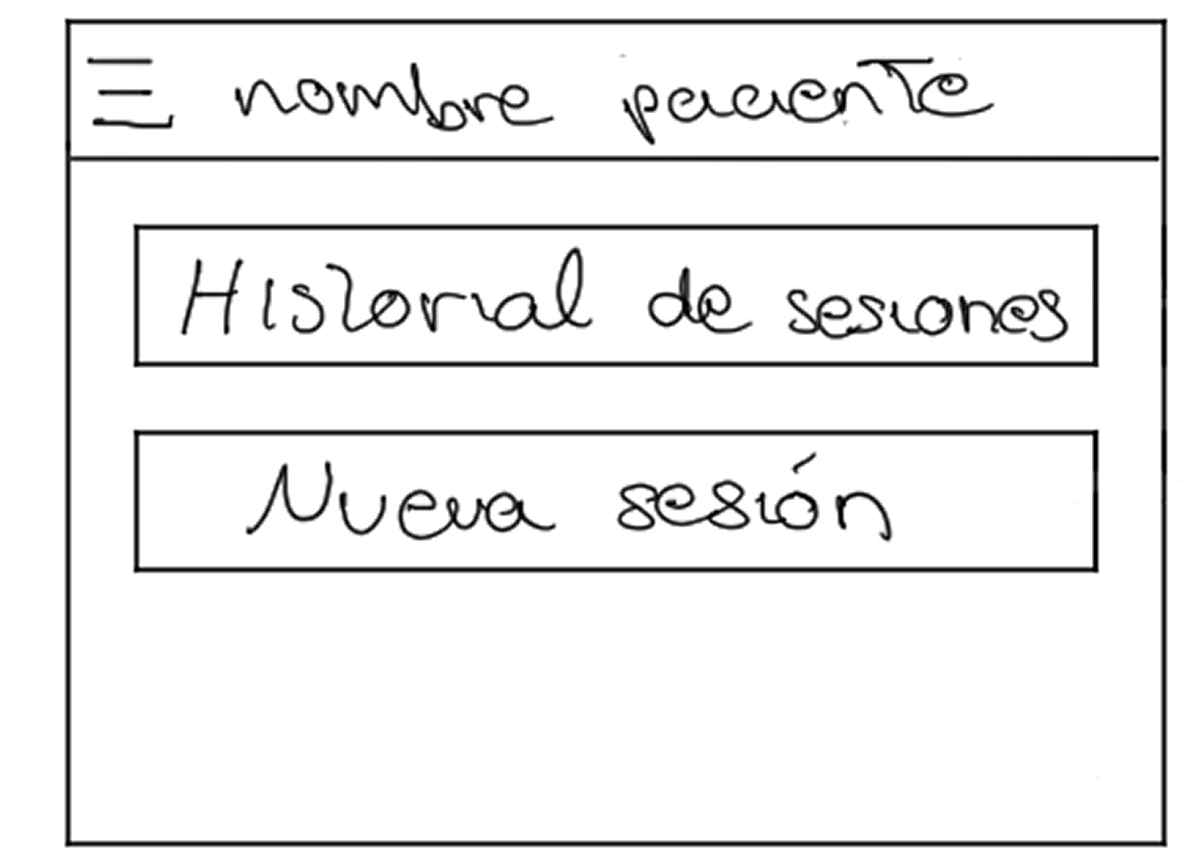 nombre paciente
Historial de sesiones
Nueva sesión